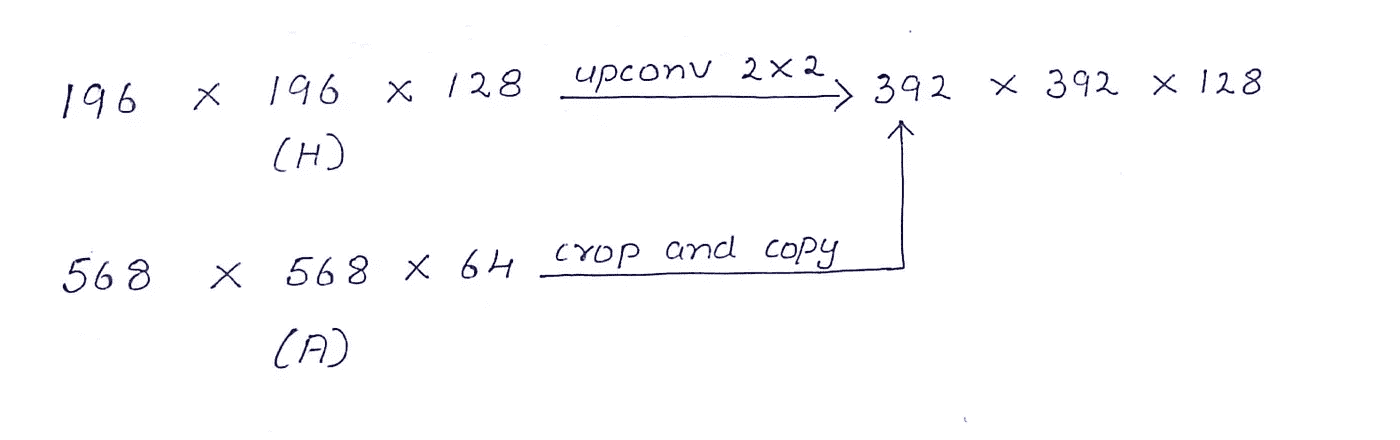 196 × 196 × 128 upconv 2×2 392 × 392 × 128
(H)
568 × 568 × 64 crop and copy
(A)